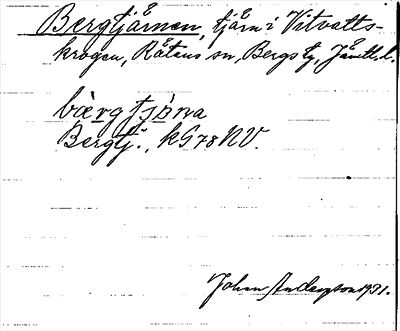 Bergtjärnen, tjärn i Vitvatts-
krogen, Rätans sn, Bergs tg, Jämtl. l.
bærgtjɔ̀na
Bergtj:, kG78NV.
Johan Anderson 1931.